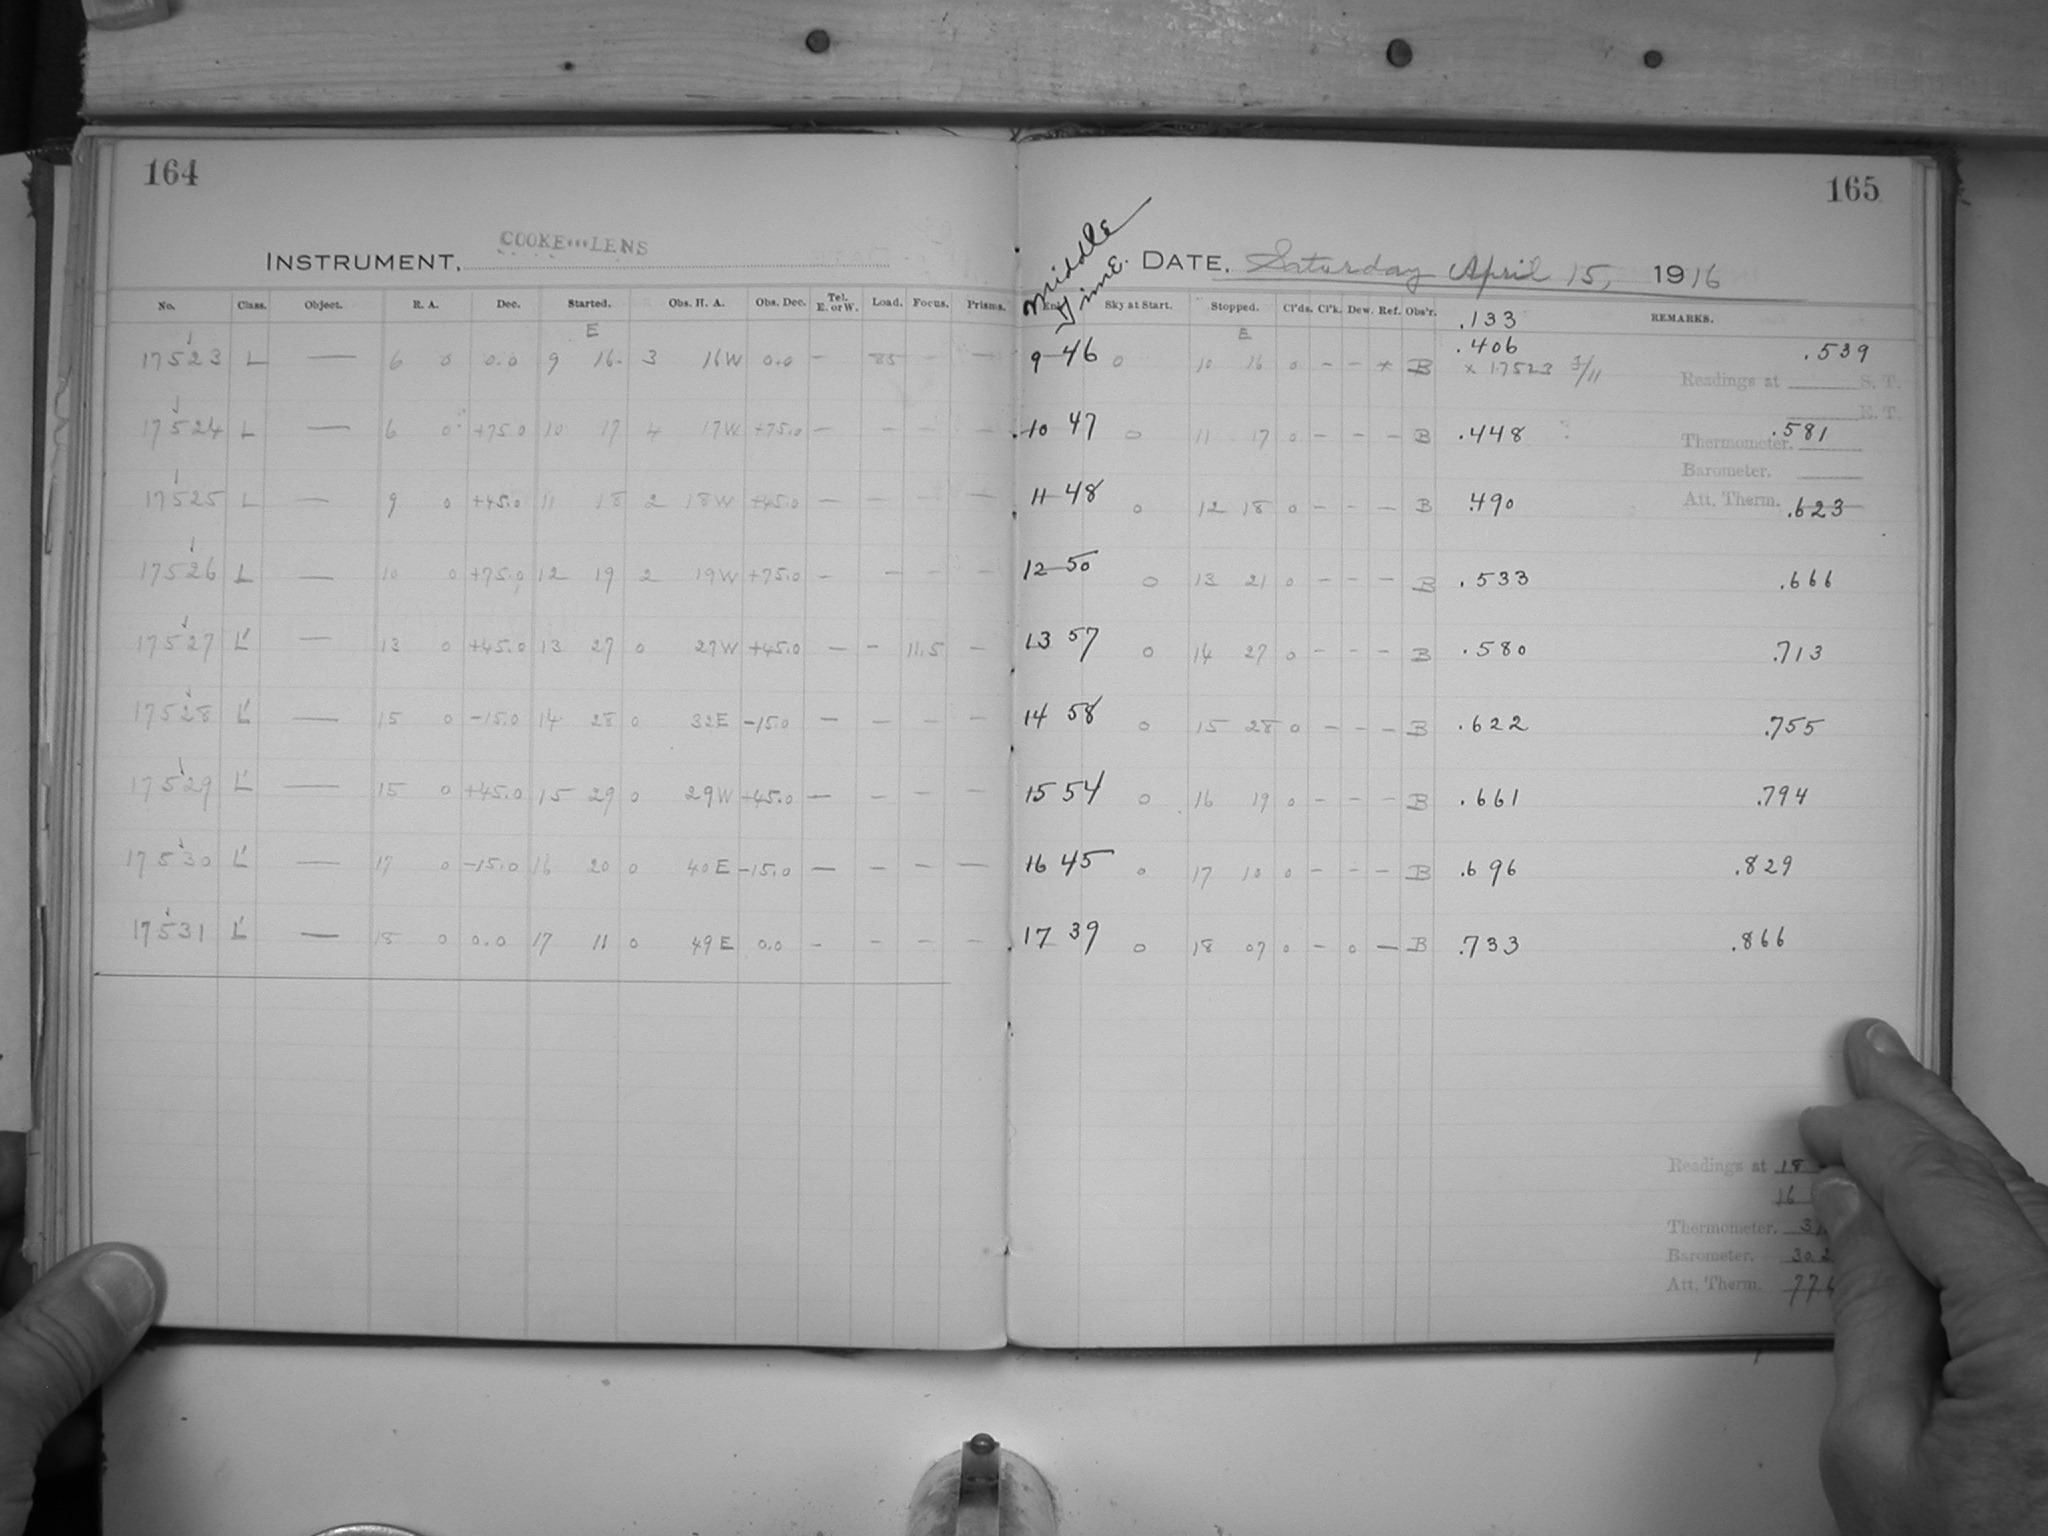 164
INSTRUMENT. COOKE LENS
No. Class. Object. R. A. Dec. Started. Obs. H. A. Obs. Dec. Tel. E. or W. Load. Focus. Prisms.
E
17523 L — 6 0 0.0 9 16 3 16W 0.0 — 85 — —
17524 L — 6 0 +75.0 10 17 4 17W +75.0 — — — —
17525 L — 9 0 +45.0 11 18 2 18W +45.0 — — — —
17526 L — 10 0 +75.0 12 19 2 19W +75.0 — — — —
17527 L' — 13 0 +45.0 13 27 0 27W +45.0 — — 11.5 —
17528 L' — 15 0 -15.0 14 28 0 32E -15.0 — — — —
17529 L' — 15 0 +45.0 15 29 0 29W +45.0 — — — —
17530 L' — 17 0 -15.0 16 20 0 40E -15.0 — — — —
17531 L' — 18 0 0.0 17 11 0 49E 0.0 — — — —
165
Middle Time.
DATE. Saturday April 15, 1916
Sky at Start. Stopped. Cl'ds. Cl'k. Dew. Ref. Obs'r. REMARKS.
.133
E
9 46 0 10 16 0 — — * B .406 .539
* 17523 3/11
Readings at S. T.
E. T.
10 47 0 11 17 0 — — — B .448 .581
Thermometer.
Barometer.
11 48 0 12 18 0 — — — B .490 .623
Att. Therm.
12 50 0 13 21 0 — — — B .533 .666
13 57 0 14 27 0 — — — B .580 .713
14 58 0 15 28 0 — — — B .622 .755
15 54 0 16 19 0 — — — B .661 .794
16 45 0 17 10 0 — — — B .696 .829
17 39 0 18 07 0 — 0 — B .733 .866
Readings at 18
16
Thermometer. 31.
Barometer. 30.2
Att. Therm. 77.